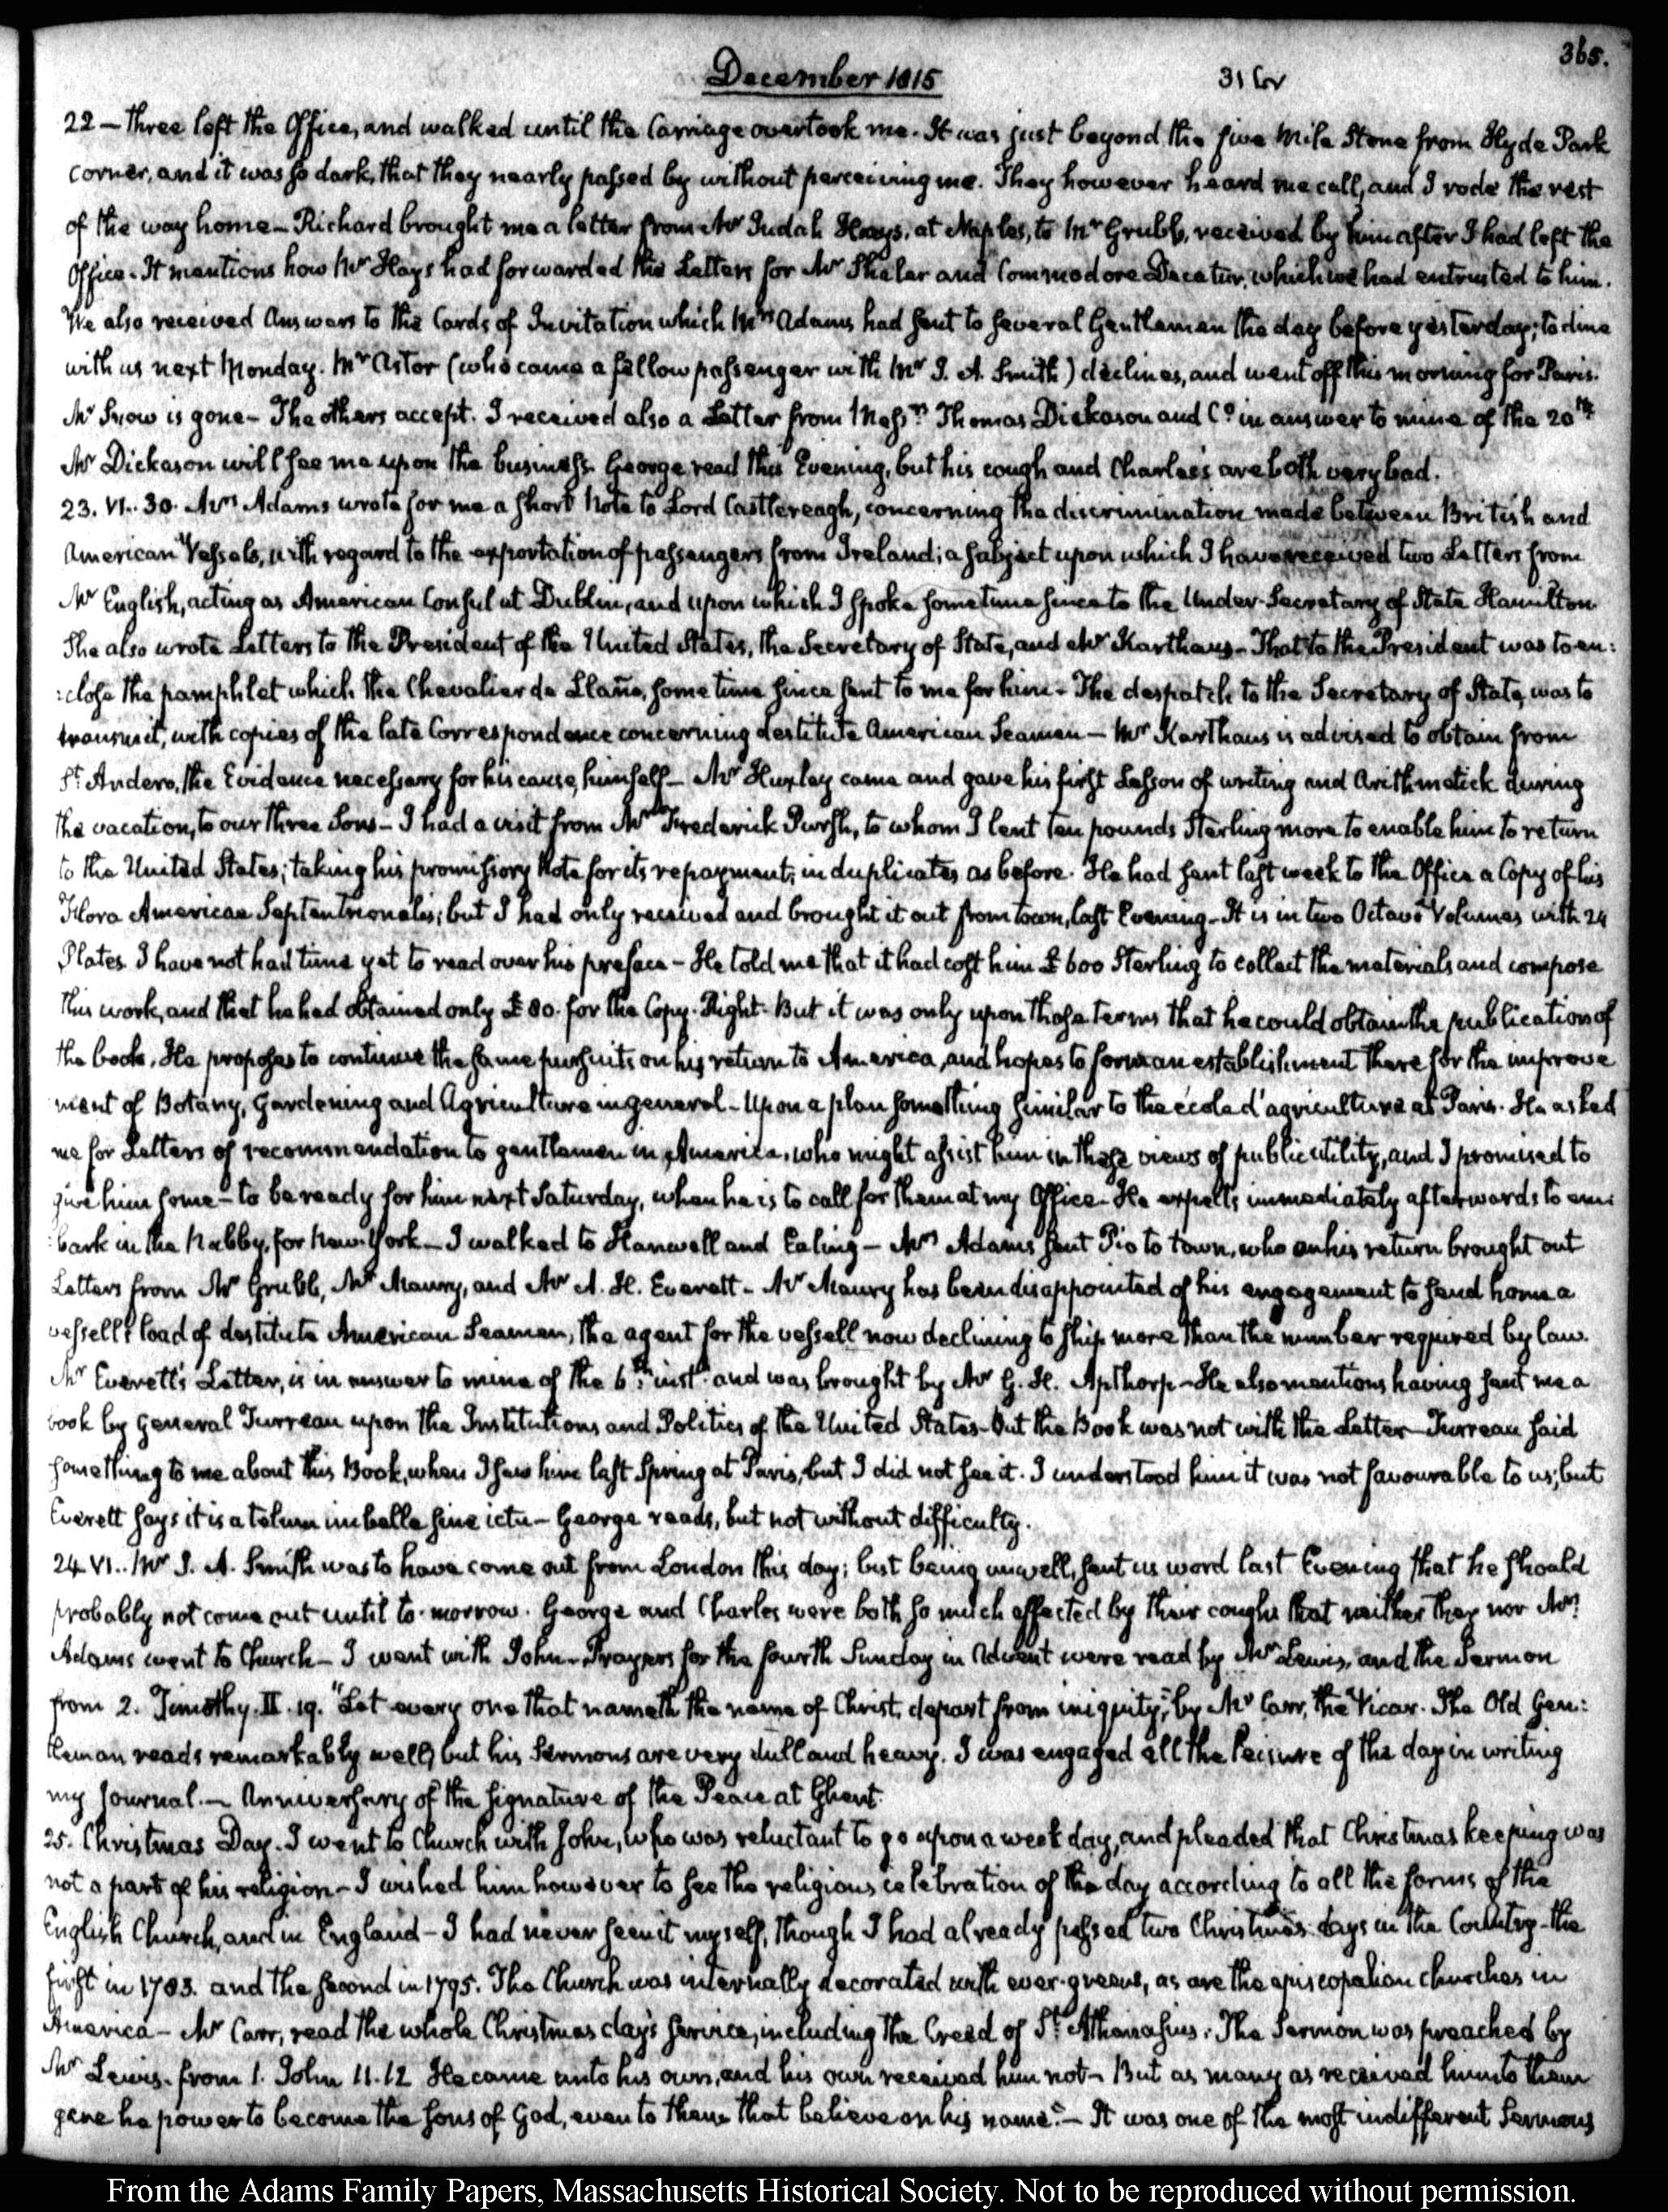 365.
December 1815
31 Gr
22 — three left the Office, and walked until the Carriage overtook me. It was just beyond the five Mile Stone from Hyde Park
corner, and it was so dark, that they nearly passed by without perceiving me. They however heard me call, and I rode the rest
of the way home — Richard brought me a letter from Mr Judah Hays, at Naples, to Mr Grubb, received by him after I had left the
Office. It mentions how Mr Hays had forwarded the Letters for Mr Shaler and Commodore Decatur, which we had entrusted to him.
We also received Answers to the Cards of Invitation which Mrs Adams had sent to several Gentlemen the day before yesterday; to dine
with us next Monday. Mr Astor (who came a fellow passenger with Mr J. A. Smith) declines, and went off this morning for Paris.
Mr Snow is gone — The others accept. I received also a Letter from Messrs Thomas Dickason and Co in answer to mine of the 20th
Mr Dickason will see me upon the business. George read this Evening, but his cough and Charles's are both very bad.
23. VI. 30. Mrs Adams wrote for me a short Note to Lord Castlereagh, concerning the discrimination made between British and
American Vessels, with regard to the exportation of passengers from Ireland; a subject upon which I have received two Letters from
Mr English, acting as American Consul at Dublin, and upon which I spoke sometime since to the Under-Secretary of State Hamilton
She also wrote Letters to the President of the United States, the Secretary of State, and Mr Karthaus — That to the President was to en:
:close the pamphlet which the Chevalier de Llano, some time since sent to me for him — The despatch to the Secretary of State, was to
transmit, with copies of the late Correspondence concerning destitute American Seamen — Mr Karthaus is advised to obtain from
St Andero, the Evidence necessary for his cause, himself — Mr Huxley came and gave his first Lesson of writing and Arithmetick during
the vacation, to our three Sons — I had a visit from Mr Frederick Pursh, to whom I lent ten pounds Sterling more to enable him to return
to the United States; taking his promissory Note for its repayment, in duplicates as before. He had sent last week to the Office a Copy of his
Flora Americae Septentrionalis; but I had only received and brought it out from town, last Evening — It is in two Octavo Volumes with 24
Plates. I have not had time yet to read over his preface — He told me that it had cost him £600 Sterling to collect the materials and compose
this work, and that he had obtained only £80. for the Copy-Right. But it was only upon those terms that he could obtain the publication of
the book. He proposes to continue the same pursuits on his return to America, and hopes to form an establishment there for the improve
ment of Botany, Gardening and Agriculture in general — Upon a plan something similar to the école d'agriculture at Paris. He asked
me for Letters of recommendation to gentlemen in America, who might assist him in those views of public utility, and I promised to
give him some — to be ready for him next Saturday, when he is to call for them at my Office — He expects immediately afterwards to em:
:bark in the Nabby, for New-York — I walked to Hanwell and Ealing — Mrs Adams sent Pio to town, who on his return brought out
Letters from Mr Grubb, Mr Maury, and Mr A. H. Everett — Mr Maury has been disappointed of his engagement to send home a
vessell load of destitute American Seamen, the agent for the vessell now declining to ship more than the number required by law.
Mr Everett's Letter, is in answer to mine of the 6th inst. and was brought by Mr G. H. Apthorp — He also mentions having sent me a
book by General Turreau upon the Institutions and Politics of the United States — But the Book was not with the Letter — Turreau said
something to me about this Book, when I saw him last Spring at Paris, but I did not see it. I understood him it was not favourable to us; but
Everett says it is a telum imbelle sine ictu — George reads, but not without difficulty.
24. VI. Mr J. A. Smith was to have come out from London this day; but being unwell, sent us word last Evening that he should
probably not come out until to-morrow. George and Charles were both so much affected by their coughs that neither they nor Mrs
Adams went to Church — I went with John — Prayers for the fourth Sunday in Advent were read by Mr Lewis, and the Sermon
from 2. Timothy. II. 19. "Let every one that nameth the name of Christ, depart from iniquity," by Mr Carr, the Vicar. The Old Gen:
tleman reads remarkably well, but his Sermons are very dull and heavy. I was engaged all the leisure of the day in writing
my Journal. — Anniversary of the signature of the Peace at Ghent.
25. Christmas Day. I went to Church with John, who was reluctant to go upon a week day, and pleaded that Christmas keeping was
not a part of his religion — I wished him however to see the religious celebration of the day according to all the forms of the
English Church, and in England — I had never seen it myself, though I had already passed two Christmas days in the Country — the
first in 1783. and the second in 1795. The Church was internally decorated with ever-greens, as are the episcopalian churches in
America — Mr Carr, read the whole Christmas day's service, including the Creed of St Athanasius. The Sermon was preached by
Mr Lewis, from 1. John 11.12 He came unto his own, and his own received him not — But as many as received him to them
gave he power to become the sons of God, even to them that believe on his name." — It was one of the most indifferent Sermons
From the Adams Family Papers, Massachusetts Historical Society. Not to be reproduced without permission.